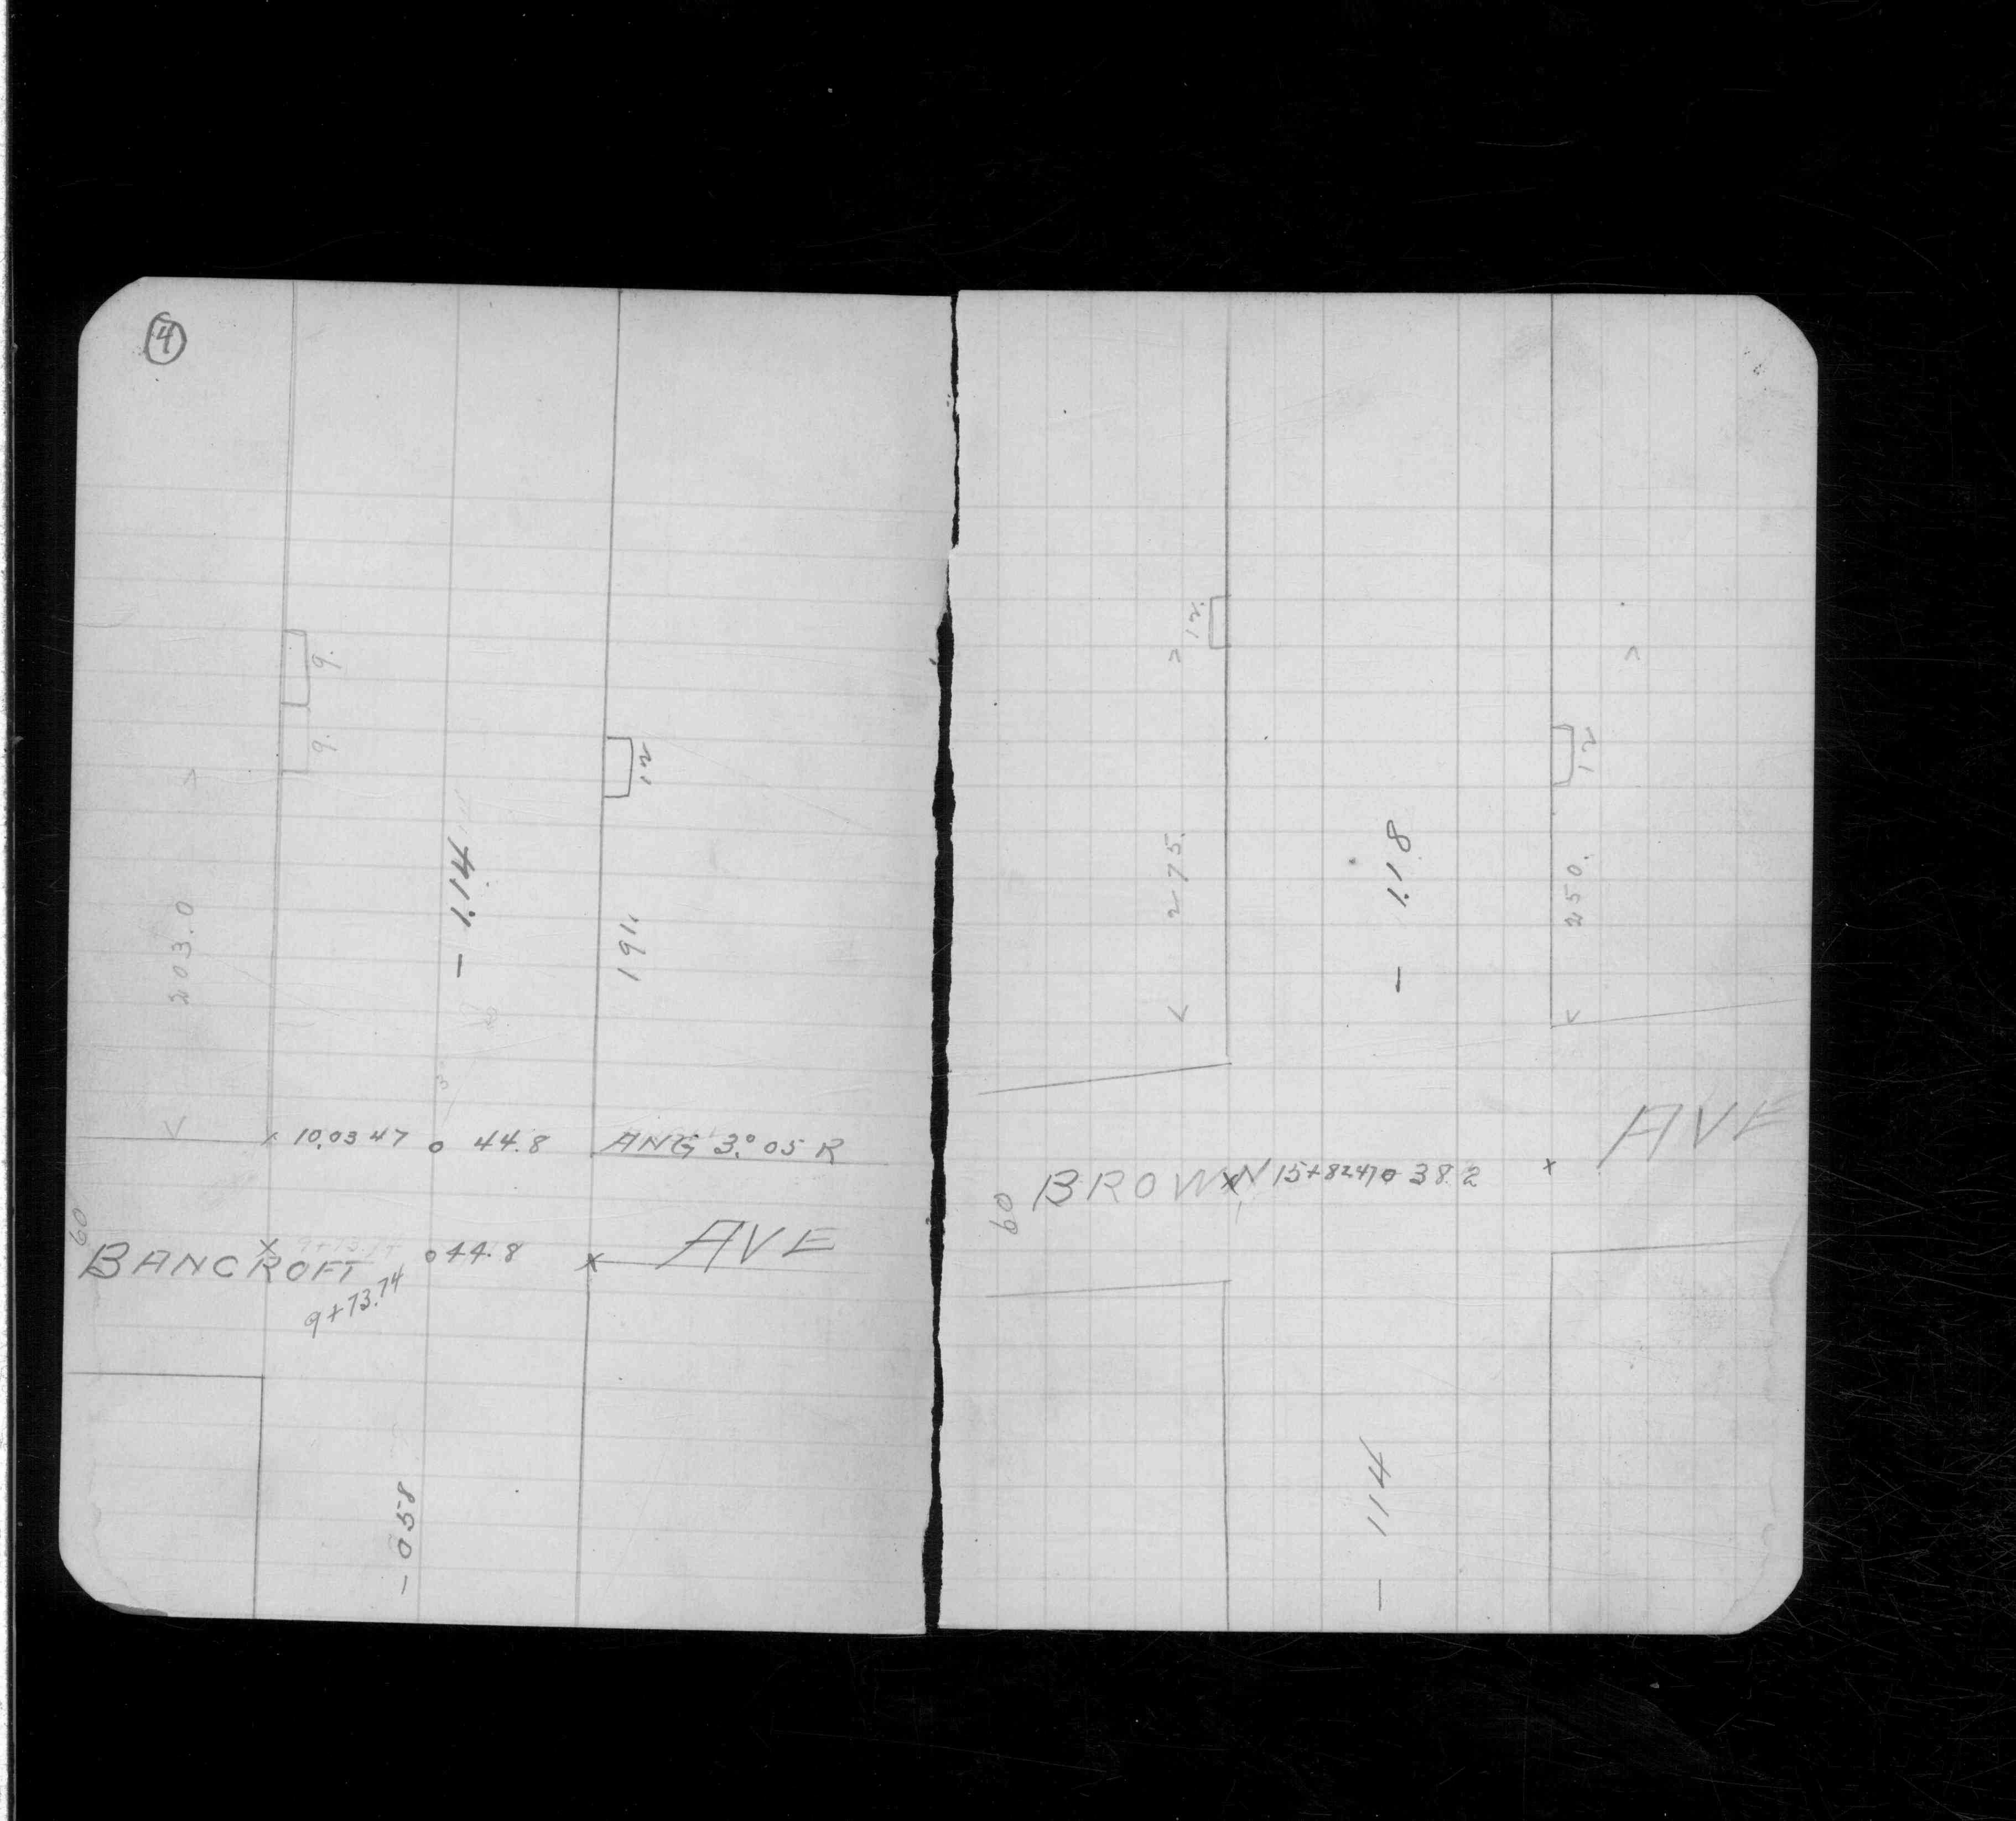 4
9.
9.
12
- 1.14
203.0
191.
10.0347 o 44.8 ANG 3.° 05 R
60
BANCROFT o 44.8 x AVE
9+73.74
- 058
12
12
275.
- 1.18
250.
60 BROWN 15+82.47 o 38.2 x AVE
- 114